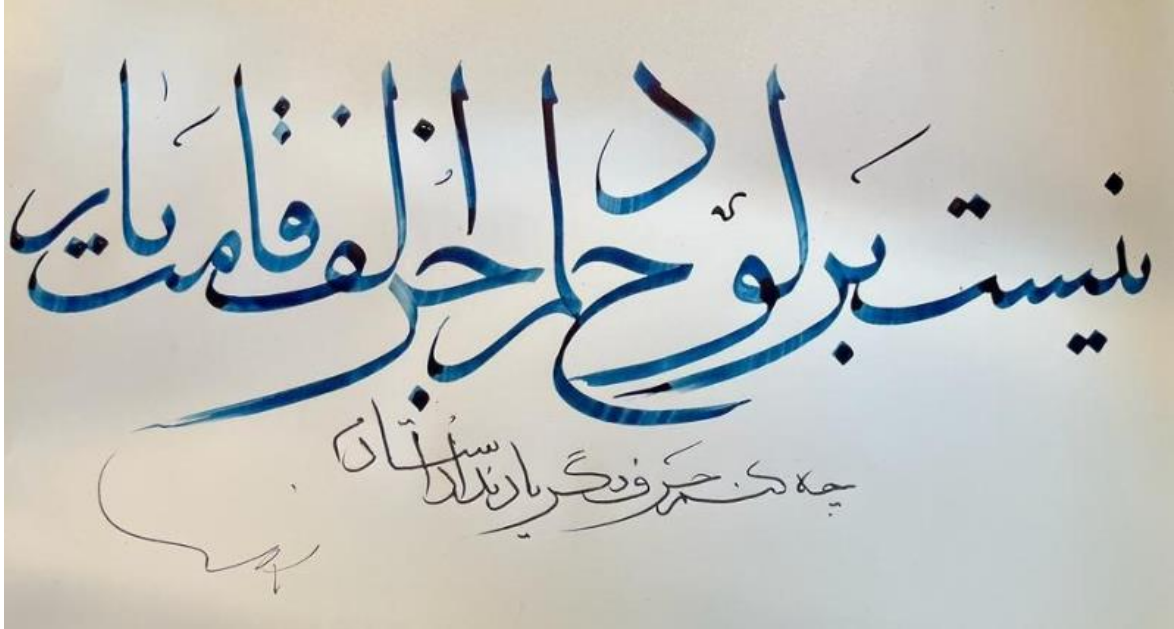 نیست بر لوح دلم جز الف قامت یار
چه کنم حرف دگر یاد نداد استادم